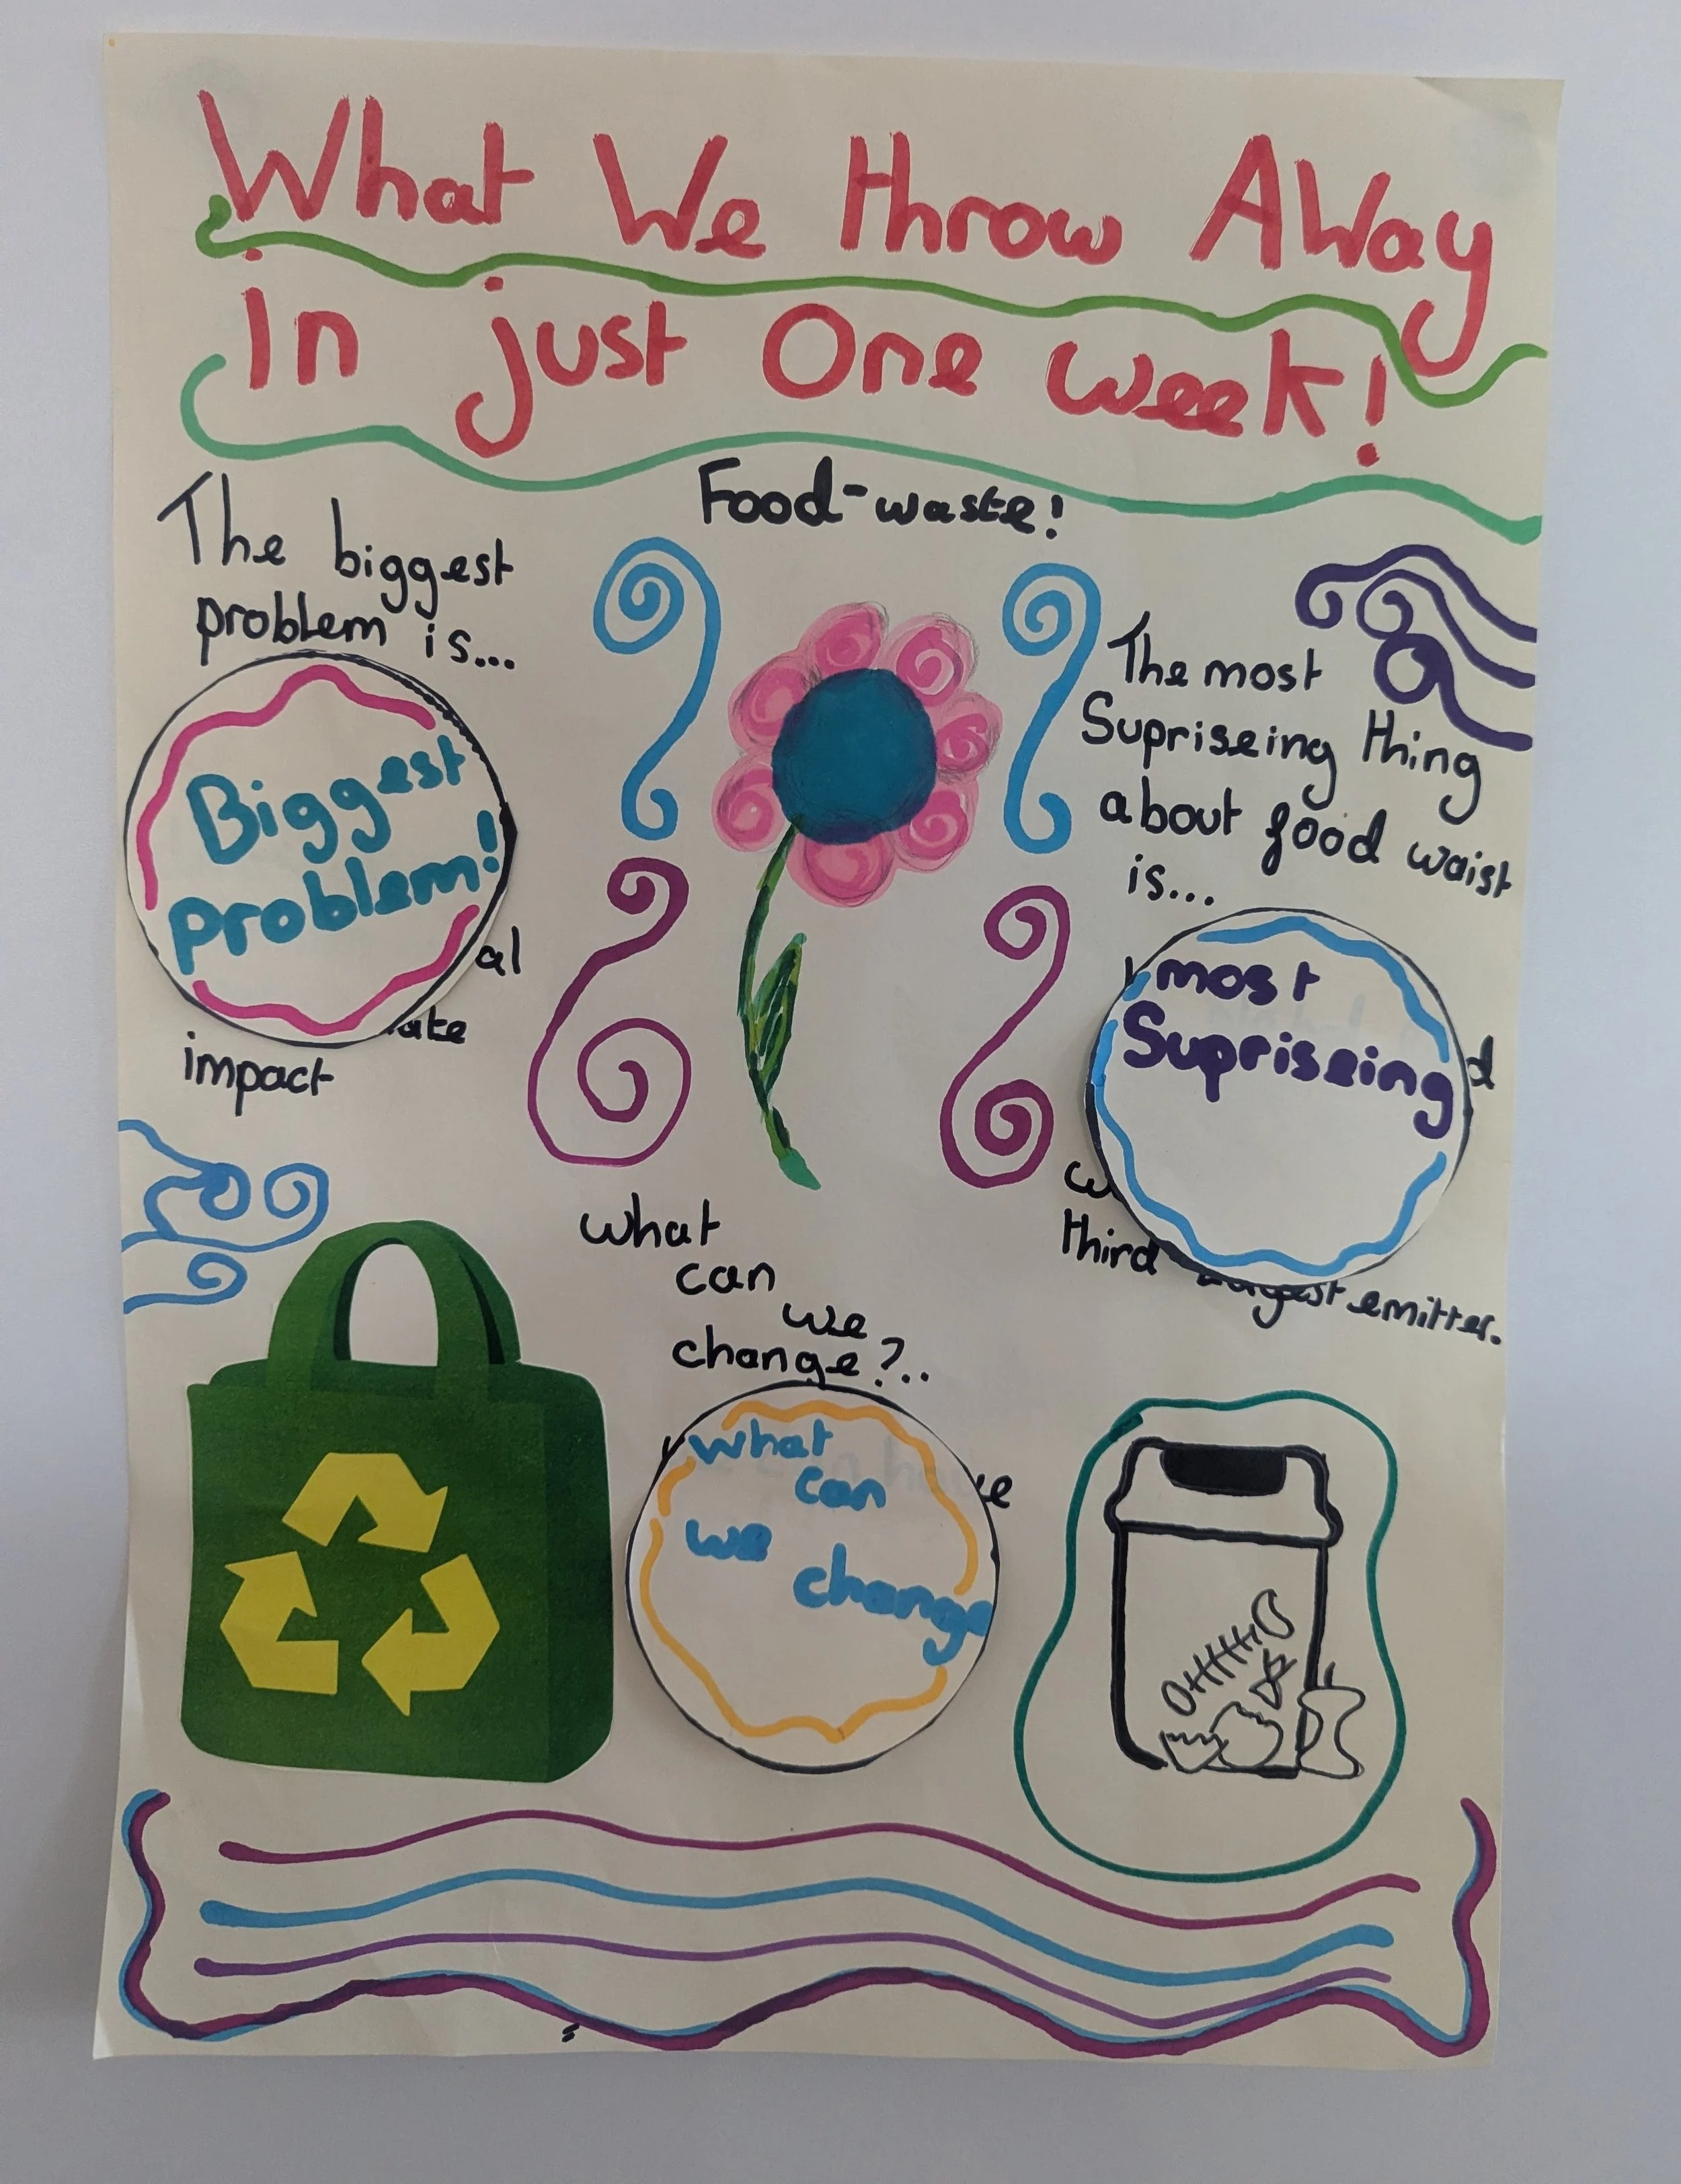 What We throw AWay
in just One week!
Food-waste!
The biggest
problem is...
Biggest
problem!
impact
The most
Supriseing thing
about food waist
is...
most
Supriseing
third
emitter.
what
can
we
change?..
what
can
we
change